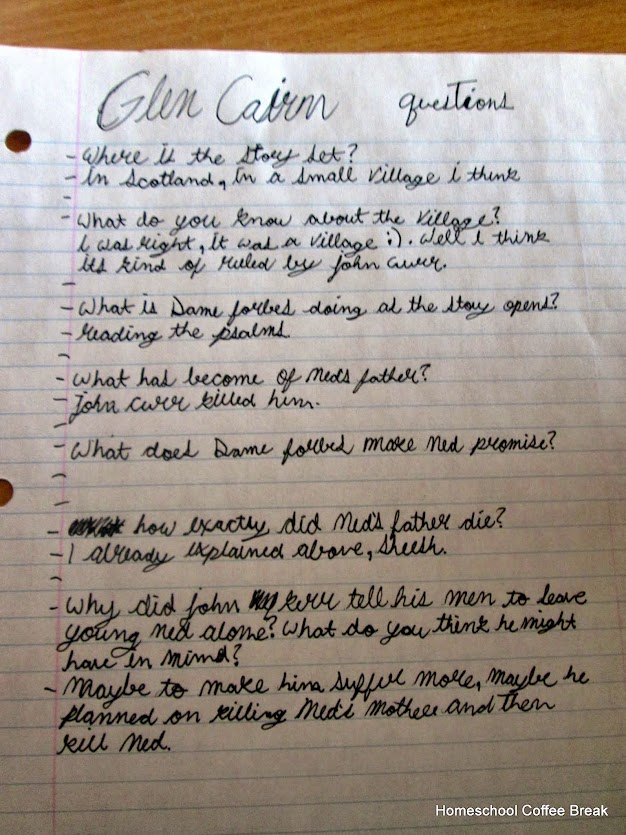 Glen Cairn questions
- Where is the story set?
- in Scotland, in a small village i think
-
- What do you know about the village?
i was right, it was a village :). Well i think
its kind of ruled by john curr.
-
- What is Dame forbes doing as the story opens?
- reading the psalms.
-
- What has become of Neds father?
- john curr killed him.
-
- What does Dame forbes make Ned promise?
-
-
- how exactly did Ned's father die?
- I already explained above, sheesh.
-
- Why did john kerr tell his men to leave
young Ned alone? What do you think he might
have in mind?
- Maybe to make him suffer more, maybe he
planned on killing Ned's mother and then
kill Ned.
Homeschool Coffee Break